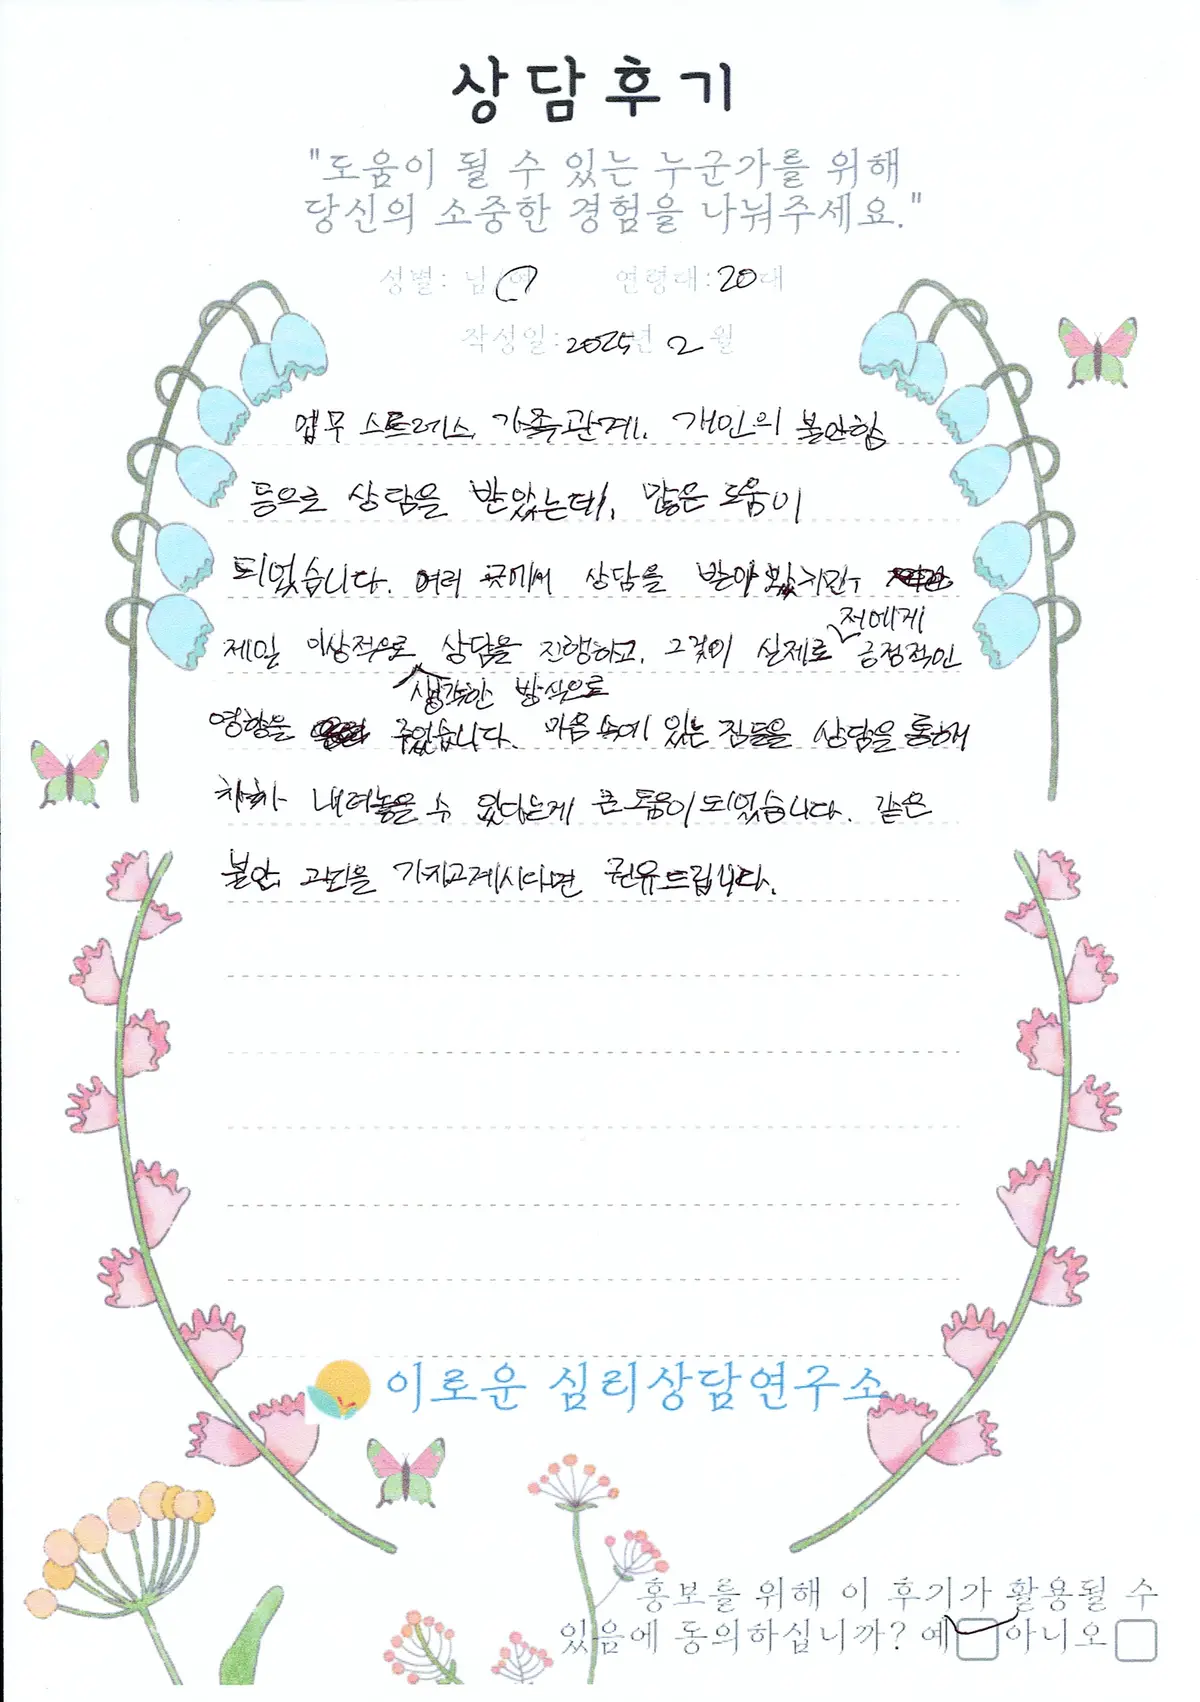 상담후기
"도움이 될 수 있는 누군가를 위해
당신의 소중한 경험을 나눠주세요."
성별: 남/여 연령대: 20대
작성일: 2025년 2월
업무 스트레스, 가족관계, 개인의 불안함
등으로 상담을 받았는데, 많은 도움이
되었습니다. 여러 곳에서 상담을 받아 봤지만,
저에게
제일 이상적으로 상담을 진행하고, 그것이 실제로 긍정적인
생각한 방식으로
영향을 주었습니다. 마음 속에 있는 짐들을 상담을 통해
차차 내려놓을 수 있다는게 큰 도움이 되었습니다. 같은
불안, 고민을 가지고계시다면 권유드립니다.
이로운 심리상담연구소
홍보를 위해 이 후기가 활용될 수
있음에 동의하십니까? 예 아니오